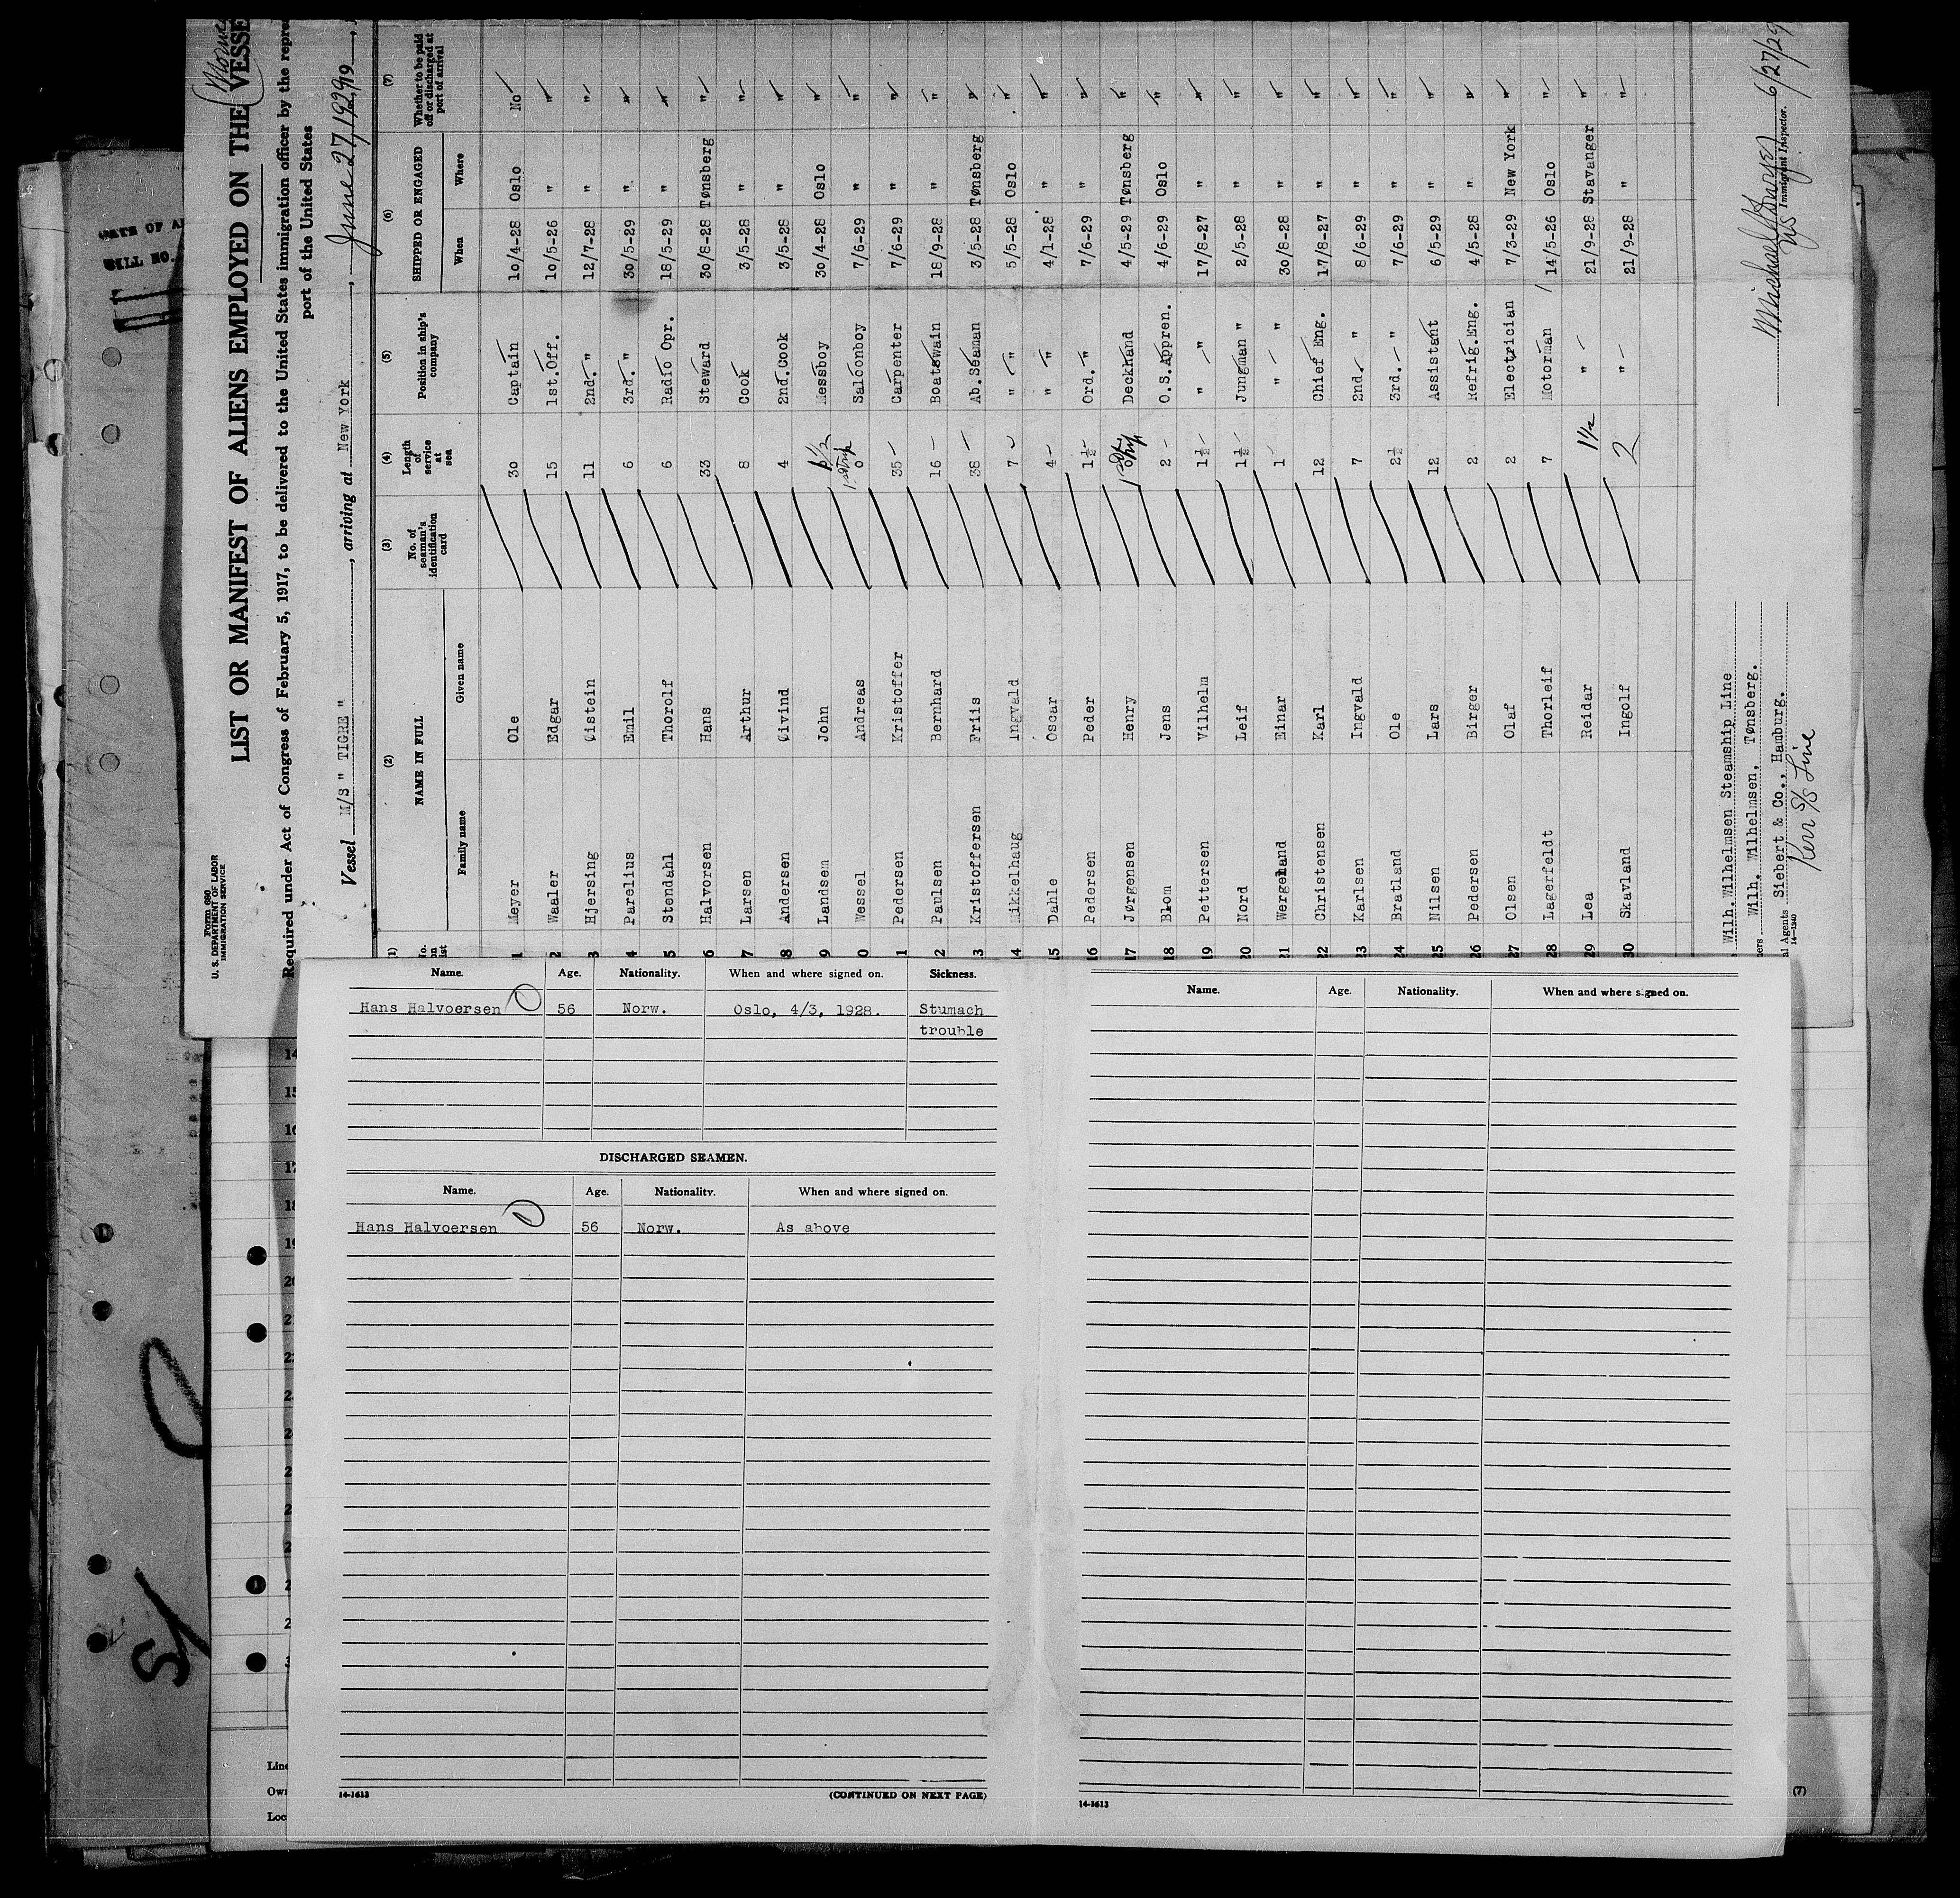 Form 680
U. S. DEPARTMENT OF LABOR
IMMIGRATION SERVICE
LIST OR MANIFEST OF ALIENS EMPLOYED ON THE VESSE
Required under Act of Congress of February 5, 1917, to be delivered to the United States immigration officer by the repre
port of the United States
Vessel M/S " TIGRE ", arriving at New York, June 27, 1929, 19
(1) (2) (3) (4) (5) (6) (7)
NAME IN FULL No. of seaman's identification card Length of service at sea Position in ship's company SHIPPED OR ENGAGED Whether to be paid off or discharged at port of arrival
Family name Given name When Where
1 Meyer Ole 30 Captain 10/4-28 Oslo No
2 Waaler Edgar 15 1st.Off. 10/5-26 " "
3 Hjersing Oistein 11 2nd. " 12/7-28 " "
4 Parelius Emil 6 3rd. " 30/5-29 " "
5 Stendahl Thorolf 6 Radio Opr. 18/5-29 " "
6 Halvorsen Hans 33 Steward 30/8-28 Tønsberg "
7 Larsen Arthur 8 Cook 3/5-28 " "
8 Andersen Oivind 4 2nd.Cook 3/5-28 " "
9 Landsem John 1½ Messboy 30/4-28 Oslo "
0 Wessel Andreas 1st trip 0 Saloonboy 7/6-29 " "
1 Pedersen Kristoffer 35 Carpenter 7/6-29 " "
2 Paulsen Bernhard 16 Boatswain 18/9-28 " "
3 Kristoffersen Friis 38 Ab.Seaman 3/5-28 Tønsberg "
14 Mikkelhaug Ingvald 7 " " 5/5-28 Oslo "
15 Dahle Oscar 4 " " 4/1-28 " "
16 Pedersen Peder 1½ Ord. " 7/6-29 " "
17 Jørgensen Henry 1st trip 0 Deckhand 4/5-29 Tønsberg "
18 Blom Jens 2 O.S.Appren. 4/6-29 Oslo "
19 Pettersen Vilhelm 1½ " " 17/8-27 " "
20 Nord Leif 1½ Jungman " 2/5-28 " "
21 Wergeland Einar 1 " " 30/8-28 " "
22 Christensen Karl 12 Chief Eng. 17/8-27 " "
23 Karlsen Ingvald 7 2nd. " 8/6-29 " "
24 Bratland Ole 2½ 3rd. " 7/6-29 " "
25 Nilsen Lars 12 Assistant 6/5-29 " "
26 Pedersen Birger 2 Refrig.Eng. 4/5-28 " "
27 Olsen Olaf 2 Electrician 7/3-29 New York "
28 Lagerfeldt Thorleif 7 Motorman 14/5-26 Oslo "
29 Lea Reidar 1½ " 21/9-28 Stavanger "
30 Skavland Ingolf 2 " 21/9-28 " "
Wilh. Wilhelmsen Steamship Line
ners Wilh. Wilhelmsen, Tønsberg.
al Agents Siebert & Co., Hamburg.
Kerr S/S Line
14-1240
6/27/29
Immigrant Inspector.
Name. Age. Nationality. When and where signed on. Sickness.
Hans Halvoersen 56 Norw. Oslo, 4/3, 1928. Stumach
trouble
DISCHARGED SEAMEN.
Name. Age. Nationality. When and where signed on.
Hans Halvoersen 56 Norw. As above
14-1613 (CONTINUED ON NEXT PAGE)
Name. Age. Nationality. When and where signed on.
14-1613
14
15
16
17
18
19
Line
Own
Loc
(7)